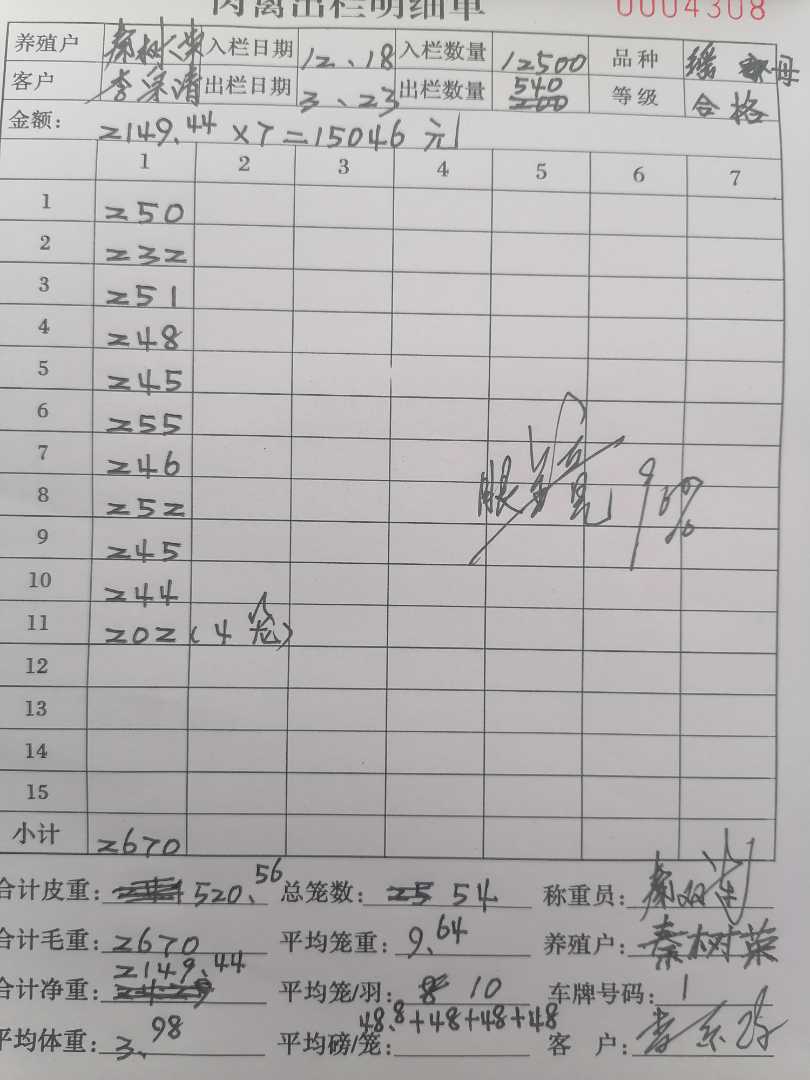 肉禽出栏明细单 0004308
养殖户 秦树荣 入栏日期 12、18 入栏数量 12500 品种 母
客户 李 清 出栏日期 3、23 出栏数量 540 200 等级 合格
金额: 2149.44×7=15046元
1 2 3 4 5 6 7
1 250
2 232
3 251
4 248
5 245
6 255
7 246
8 252
9 245
10 244
11 202(4笼)
12
13
14
15
小计 2670
合计皮重: 520.56 总笼数: 25 54 称重员: 秦
合计毛重: 2670 平均笼重: 9.64 养殖户: 秦树荣
合计净重: 2149.44 平均笼/羽: 8 10 车牌号码: 1
平均体重: 3.98 平均磅/笼: 48.8+48+48+48 客 户: 李